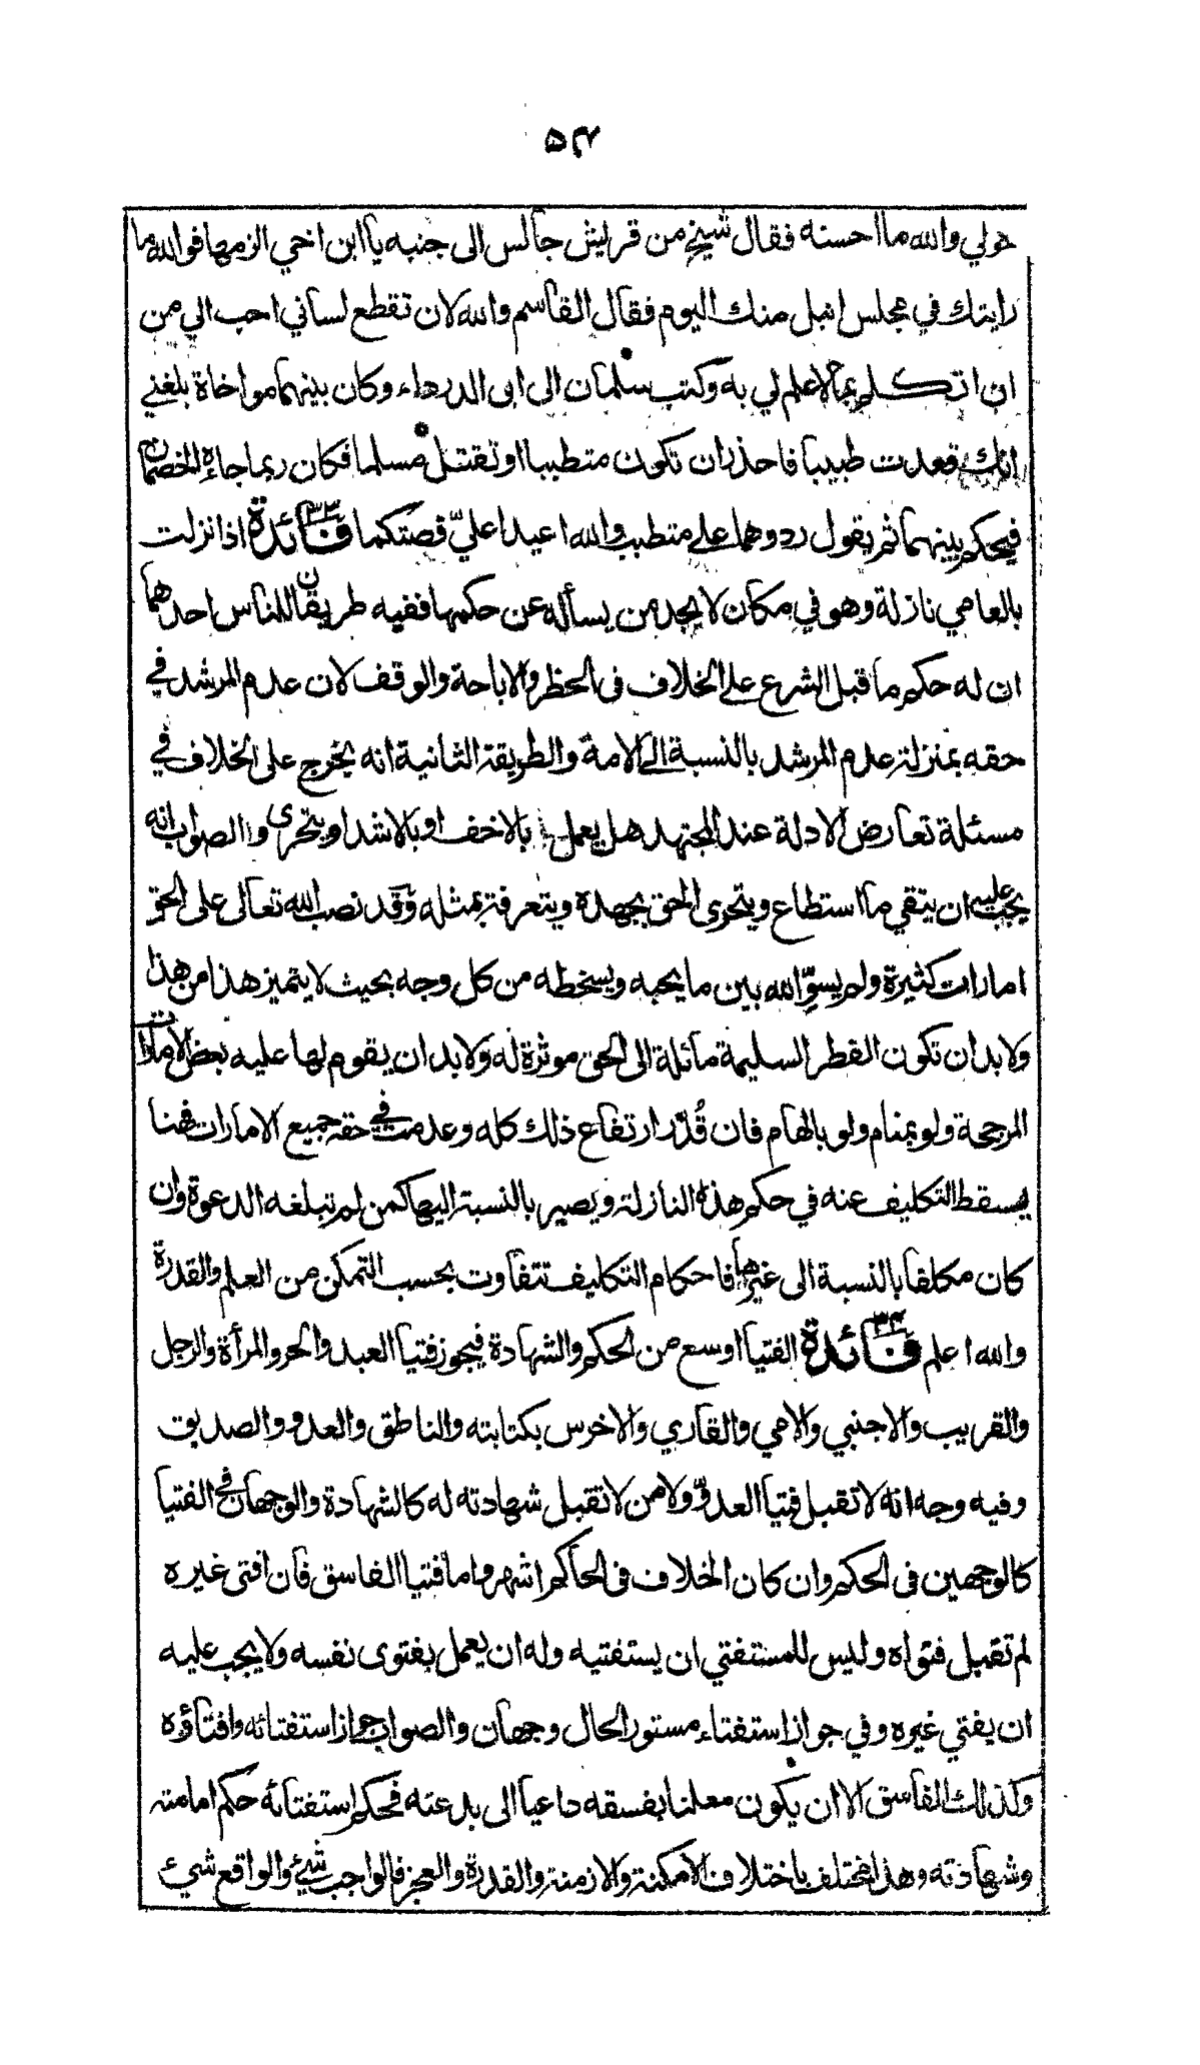 ۵۴
حولي والله ما احسنه فقال شيخ من قريش جالس الى جنبه يا ابن اخي الزمها فوالله ما
رايتك في مجلس انبل منك اليوم فقال القاسم والله لان تقطع لساني احب الي من
ان اتكلم بما لا علم لي به وكتب سلمان الى ابى الدرداء وكان بينهما مواخاة بلغني
انك قعدت طبيبا فاحذر ان تكون متطببا او تقتل مسلما فكان ربما جاءه الخصمان
فيحكم بينهما ثم يقول ردوهما علي متطبب والله اعيدا عليّ قصتكما فائدة ٣٣ اذا نزلت
بالعامي نازلة وهو في مكان لا يجد من يسأله عن حكمها ففيه طريقان للناس احدهما
ان له حكم ما قبل الشرع على الخلاف فى الحظر والاباحة والوقف لان عدم المرشد في
حقه بمنزلة عدم المرشد بالنسبة الى الامة والطريقة الثانية انه يخرج على الخلاف في
مسئلة تعارض الادلة عند المجتهد هل يعمل بالاخف او بالاشد او يتحرى والصواب انه
يجب عليه ان يتقي ما استطاع ويتحرى الحق بجهده ويتعرفة بمثله وقد نصب الله تعالى على الحق
امارات كثيرة ولم يسوِّ الله بين ما يحبه ويسخطه من كل وجه بحيث لا يتميز هذا من هذا
ولا بد ان تكون الفطر السليمة مائلة الى الحق موثرة له ولا بد ان يقوم لها عليه بعض الامارات
المرجحة ولو بمنام ولو بالهام فان قُدّر ارتفاع ذلك كله وعدمت في حقه جميع الامارات فهنا
يسقط التكليف عنه في حكم هذه النازلة ويصير بالنسبة اليها كمن لم تبلغه الدعوة وان
كان مكلفا بالنسبة الى غيرها فاحكام التكليف تتفاوت بحسب التمكن من العلم والقدرة
والله اعلم فائدة ٣٤ الفتيا اوسع من الحكم والشهادة فيجوز فتيا العبد والحر والمرأة والرجل
والقريب والاجنبي والامي والقاري والاخرس بكتابته والناطق والعدو والصديق
وفيه وجه انه لا تقبل فتيا العدوّ ولا من لا تقبل شهادته له كالشهادة والوجهان في الفتيا
كالوجهين فى الحكم وان كان الخلاف فى الحاكم اشهر واما فتيا الفاسق فان افتى غيره
لم تقبل فتواه وليس للمستفتي ان يستفتيه وله ان يعمل بفتوى نفسه ولا يجب عليه
ان يفتي غيره وفي جواز استفتاء مستور الحال وجهان والصواب جواز استفتائه وافتاؤه
وكذلك الفاسق الا ان يكون معلنا بفسقه داعيا الى بدعته فحكم استفتائه حكم امامته
وشهادته وهذا مختلف باختلاف الامكنة والازمنة والقدرة والعجز فالواجب شيئ والواقع شيئ